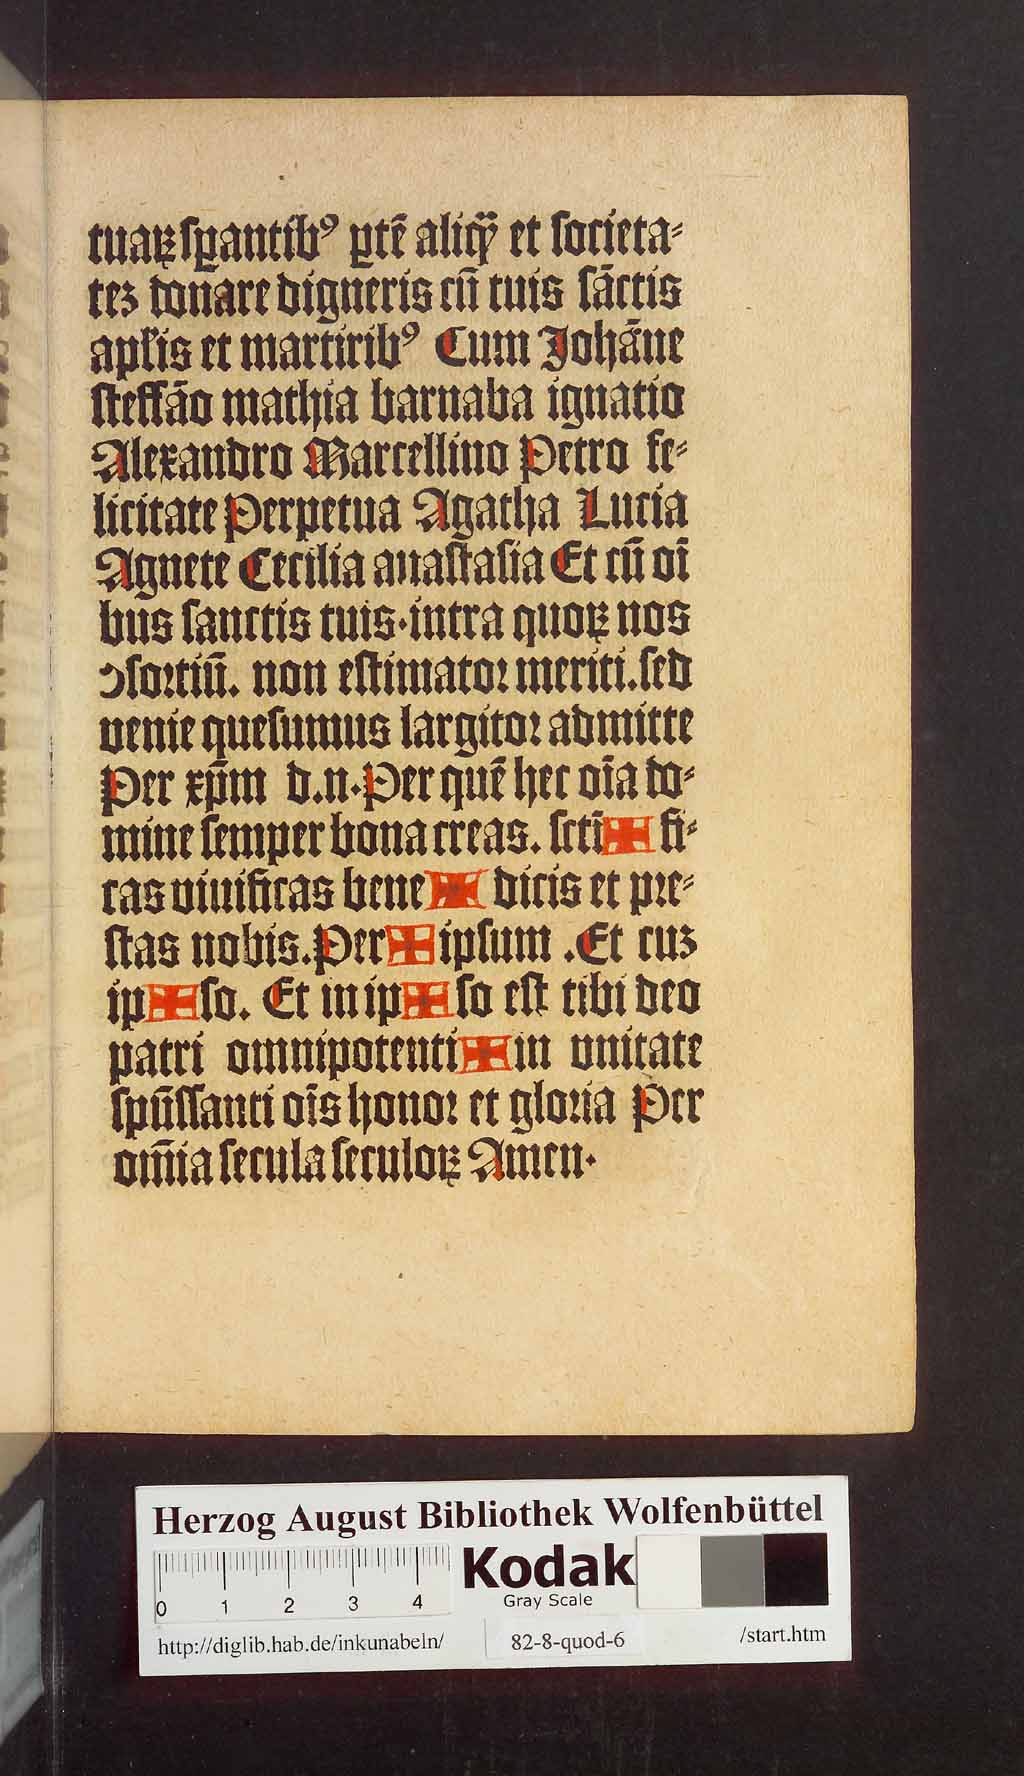 tuaꝝ ſꝑantibꝰ ꝑtē aliq̄ꝫ et ſocieta⸗
teꝫ donare digneris cū tuis ſāctis
apl̄is et martiribꝰ Cum Johāne
ſteffāo mathia barnaba ignatio
Alexandro Marcellino Petro fe⸗
licitate Perpetua Agatha Lucia
Agnete Cecilia anaſtaſia Et cū oī
bus ſanctis tuis·intra quoꝝ nos
ↄſoꝛtiū. non eſtimatoꝛ meriti.ſed
venie queſumus largitoꝛ admitte
Per xp̄m d.n.Per quē hec oīa do⸗
mine ſemper bona creas. ſcti̅ ✠ fi⸗
cas viuificas bene ✠ dicis et pꝛe⸗
ſtas nobis.Per ✠ ipſum .Et cuꝫ
ip ✠ ſo. Et in ip ✠ ſo eſt tibi deo
patri omnipotenti ✠ in vnitate
ſpūſſanti oīs honoꝛ et gloꝛia Per
om̄ia ſecula ſeculoꝝ Amen·
Herzog August Bibliothek Wolfenbüttel
Kodak
Gray Scale
0 1 2 3 4
http://diglib.hab.de/inkunabeln/ 82-8-quod-6 /start.htm